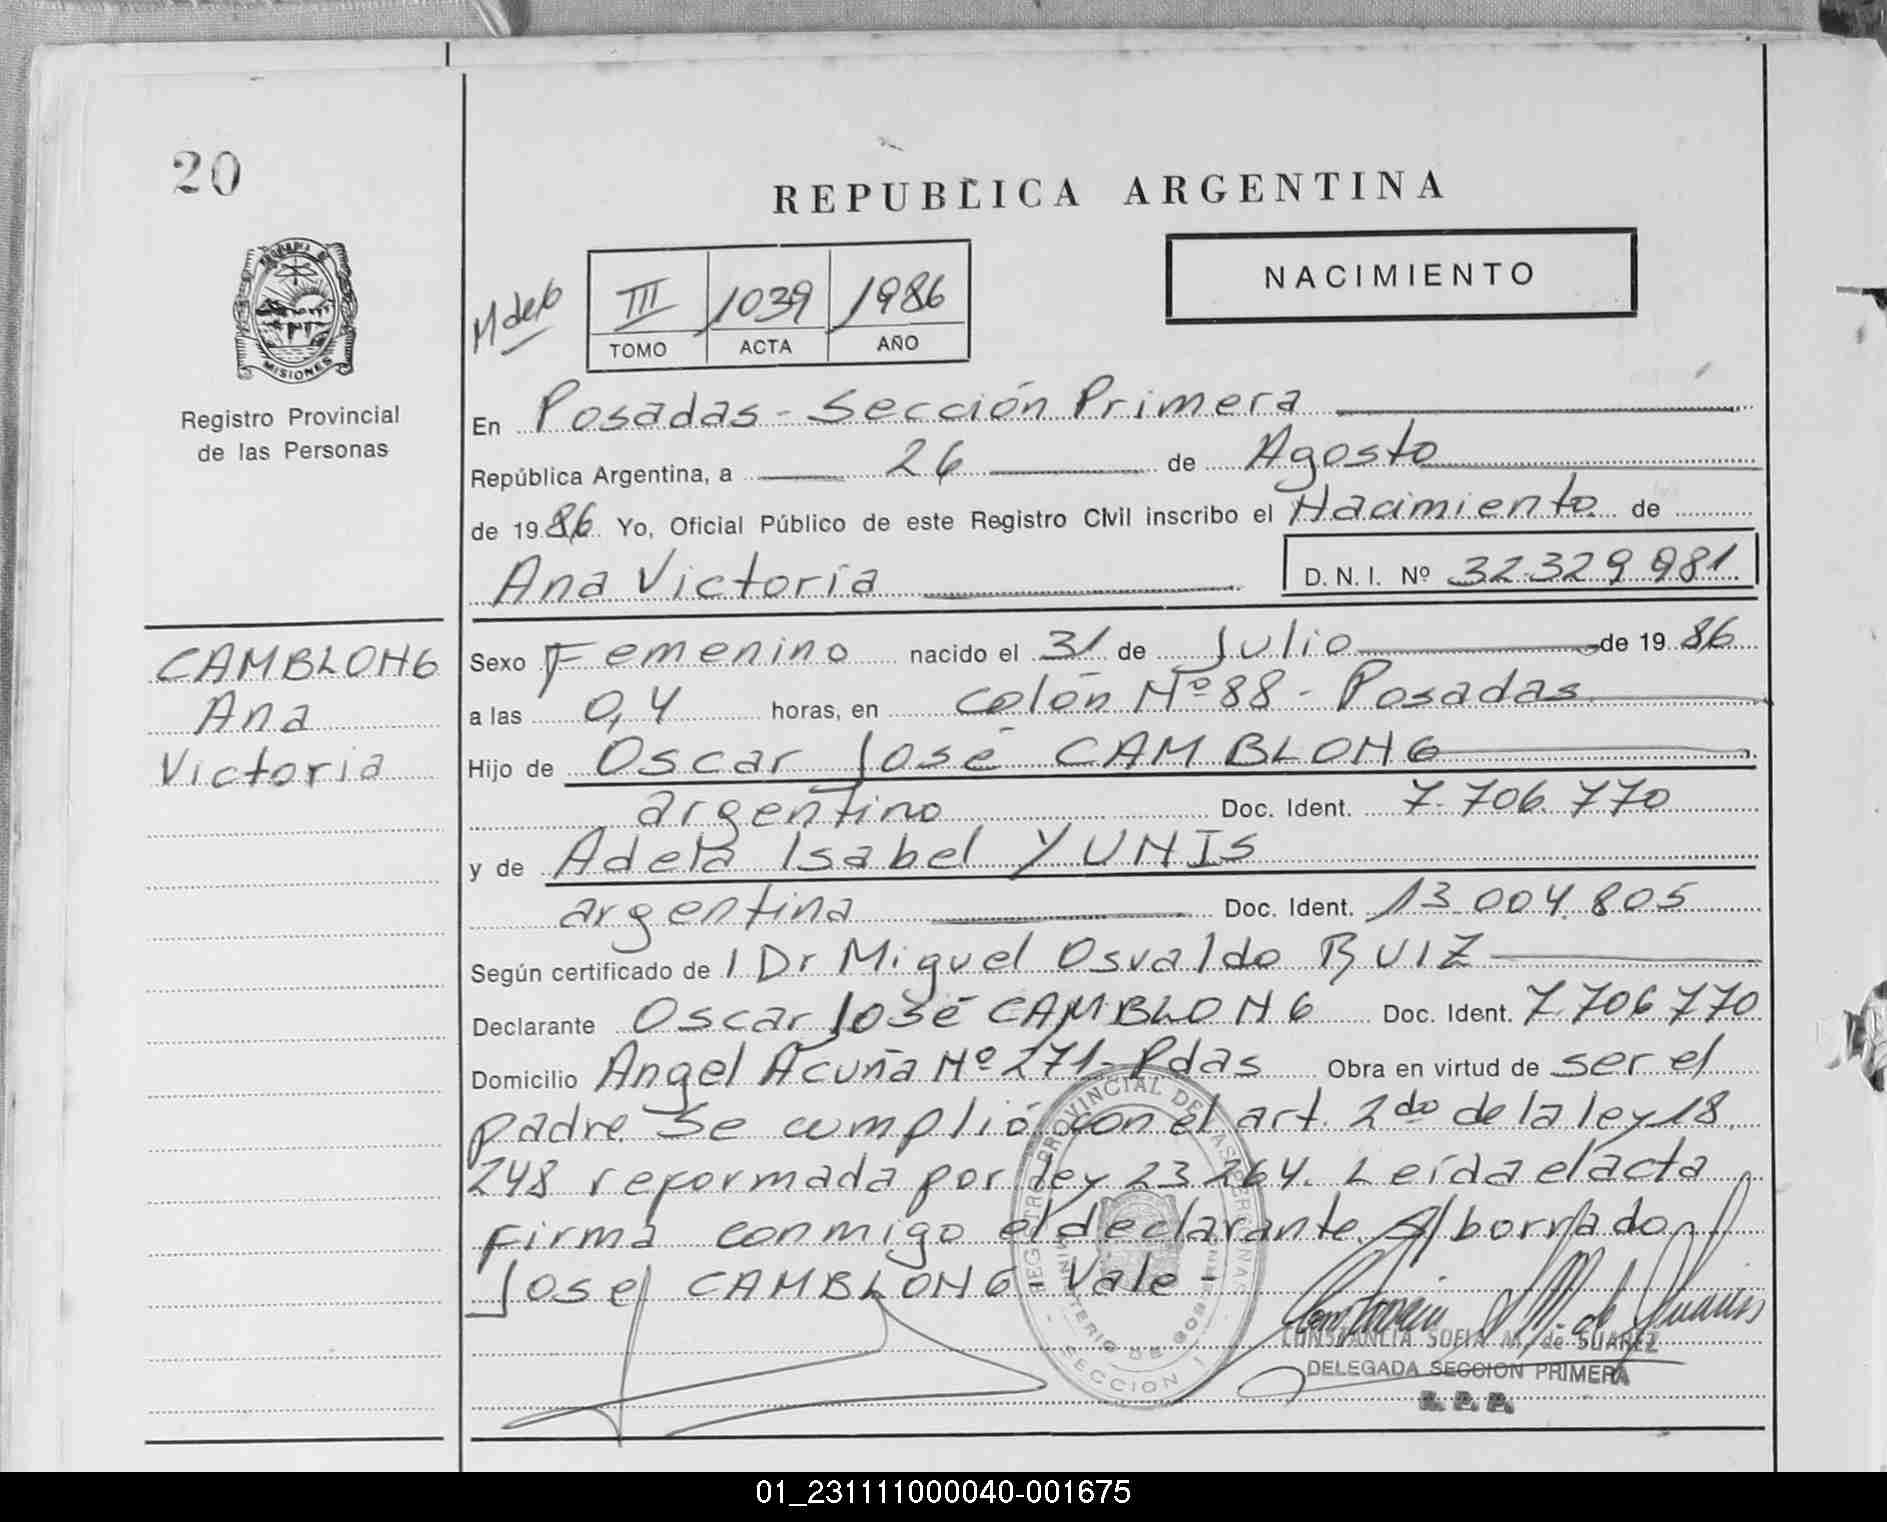 20
REPUBLICA ARGENTINA
NACIMIENTO
III 1039 1986
TOMO ACTA AÑO
MISIONES
Registro Provincial
de las Personas
En Posadas - Sección Primera
República Argentina, a 26 de Agosto
de 1986 Yo, Oficial Público de este Registro Civil inscribo el Nacimiento de
Ana Victoria D.N.I. Nº 32.329.981
CAMBLONG
Ana
Victoria
Sexo Femenino nacido el 31 de Julio de 1986
a las 0,4 horas, en Colón Nº 88 - Posadas
Hijo de Oscar José CAMBLONG
argentino Doc. Ident. 7.706.770
y de Adela Isabel YUNIS
argentina Doc. Ident. 13.004.805
Según certificado de l Dr Miguel Osvaldo RUIZ
Declarante Oscar José CAMBLONG Doc. Ident. 7.706.770
Domicilio Angel Acuña Nº 271 - Pdas Obra en virtud de ser el
padre. Se cumplió con el art. 2do de la ley 18.
248 reformada por ley 23.264. Leída el acta
firma conmigo el declarante. S/borrado
José CAMBLONG - Vale -
REGISTRO PROVINCIAL DE LAS PERSONAS
MINISTERIO DE GOBIERNO
- SECCION I -
CONSTANCIA SOFIA M. de SUAREZ
DELEGADA SECCION PRIMERA
R. P. P.
01_231111000040-001675